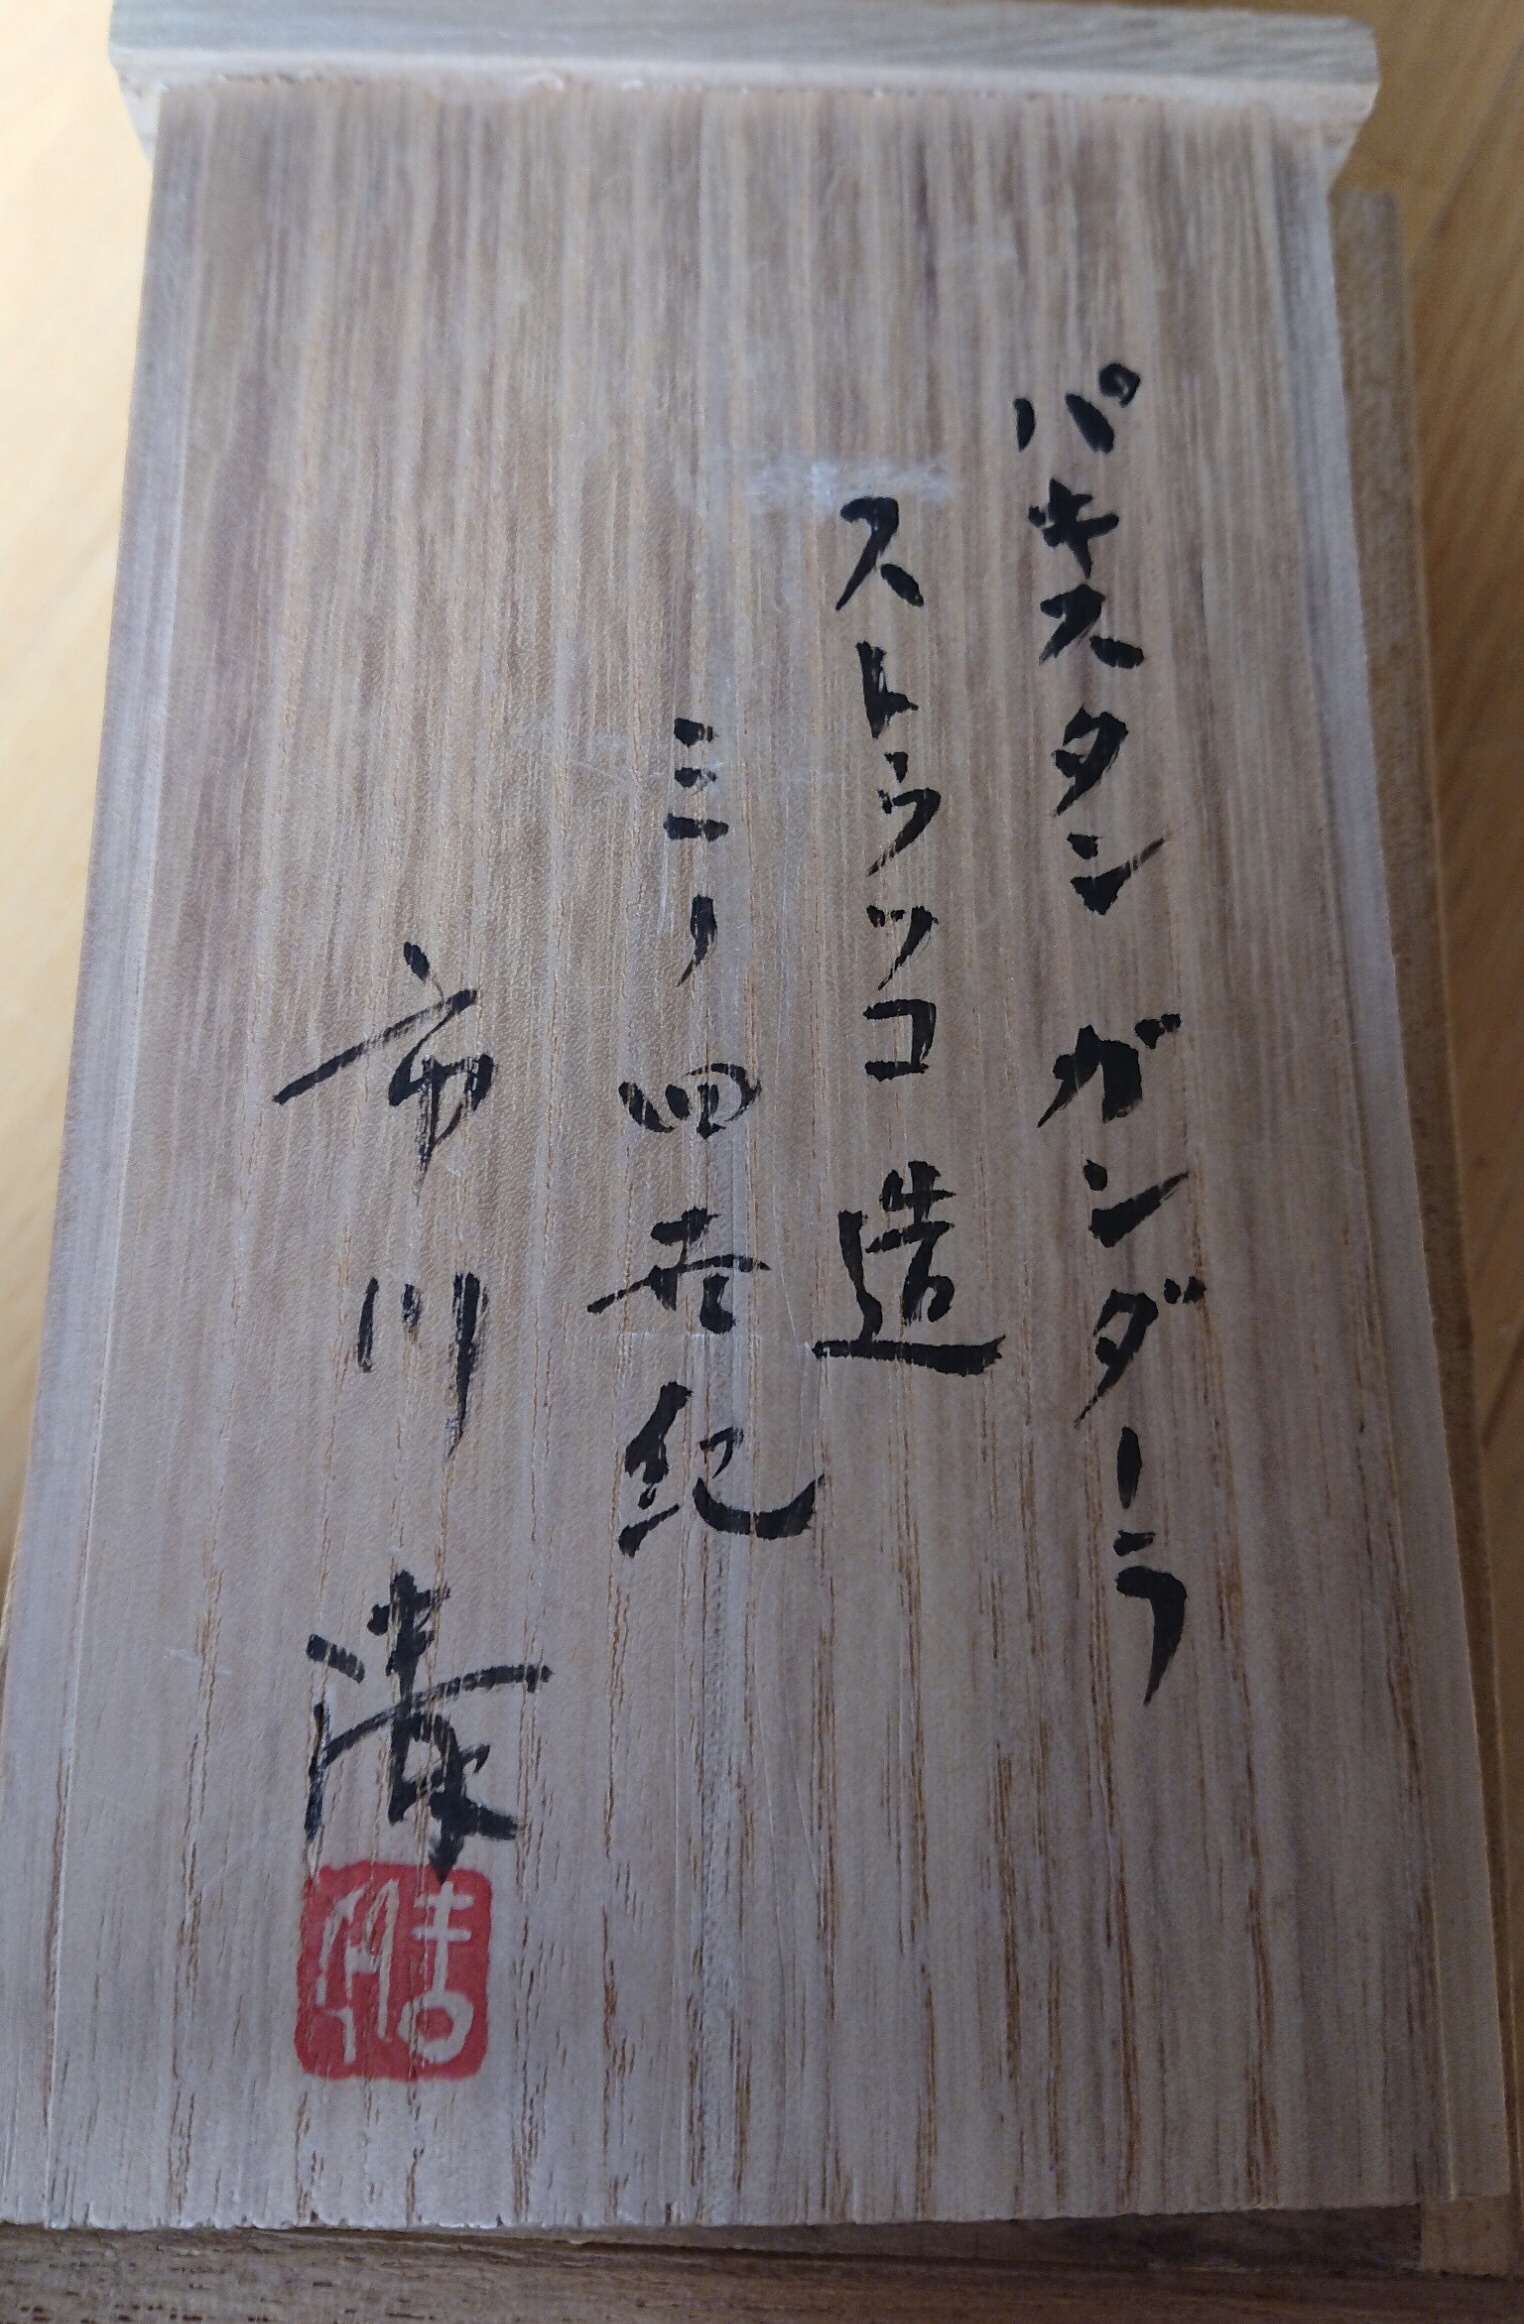 パキスタン ガンダーラ
ストゥッコ 造
三ノ四世紀
市川 清